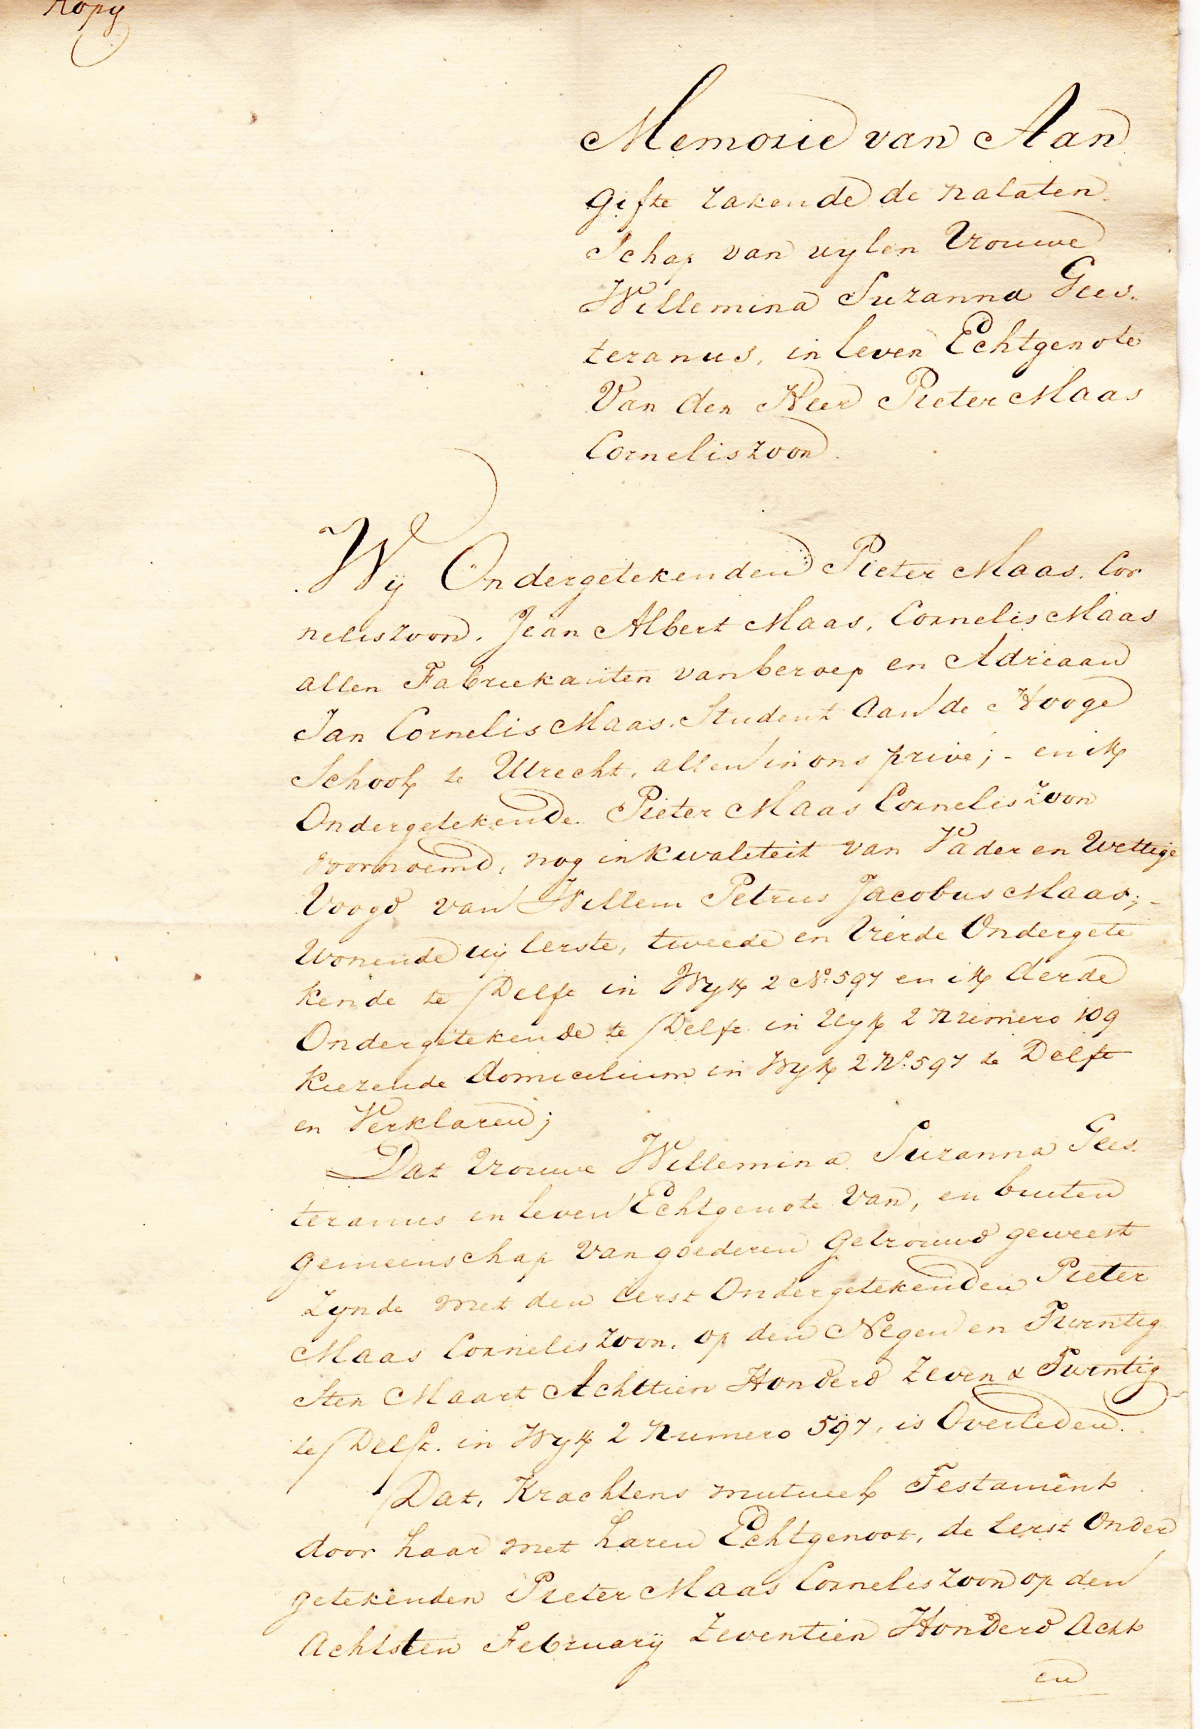 Kopy
Memorie van Aan
gifte zakende de nalaten
schap van wylen Vrouwe
Willemina Suzanna Gees-
teranus, in leven Echtgenote
Van den Heer Pieter Maas
Corneliszoon.
Wij Ondergetekenden Pieter Maas. Cor
neliszoon. Jean Albert Maas, Cornelis Maas
allen Fabriekanten van beroep en Adriaan
Jan Cornelis Maas. Student aan de Hooge
School te Utrecht, allen in ons privé; - en ik
Ondergetekende Pieter Maas Corneliszoon
voornoemd, nog in kwaliteit van Vader en Wettige
Voogd van Willem Petrus Jacobus Maas; -
Wonende wij Eerste, tweede en Vierde Ondergete
kende te Delft in Wyk 2 No. 597 en ik derde
Ondergetekende te Delft in Wyk 2 Numero 109
kiezende domicilium in Wyk 2 No. 597 te Delft
en Verklaren;
Dat Vrouwe Willemina Suzanna Gees
teranus in leven Echtgenote Van, en buiten
gemeenschap van goederen getrouwd geweest
zynde met den Eerst Ondergetekenden Pieter
Maas Corneliszoon, op den Negen en Twintig
sten Maart Achttien Honderd Zeven & Twintig
te Delft. in Wyk 2 Numero 597, is Overleden.
Dat, Krachtens mutueel Testament
door haar met haren Echtgenoot, de Eerst Onder
getekenden Pieter Maas Corneliszoon op den
Achtsten February Zeventien Honderd Acht
en